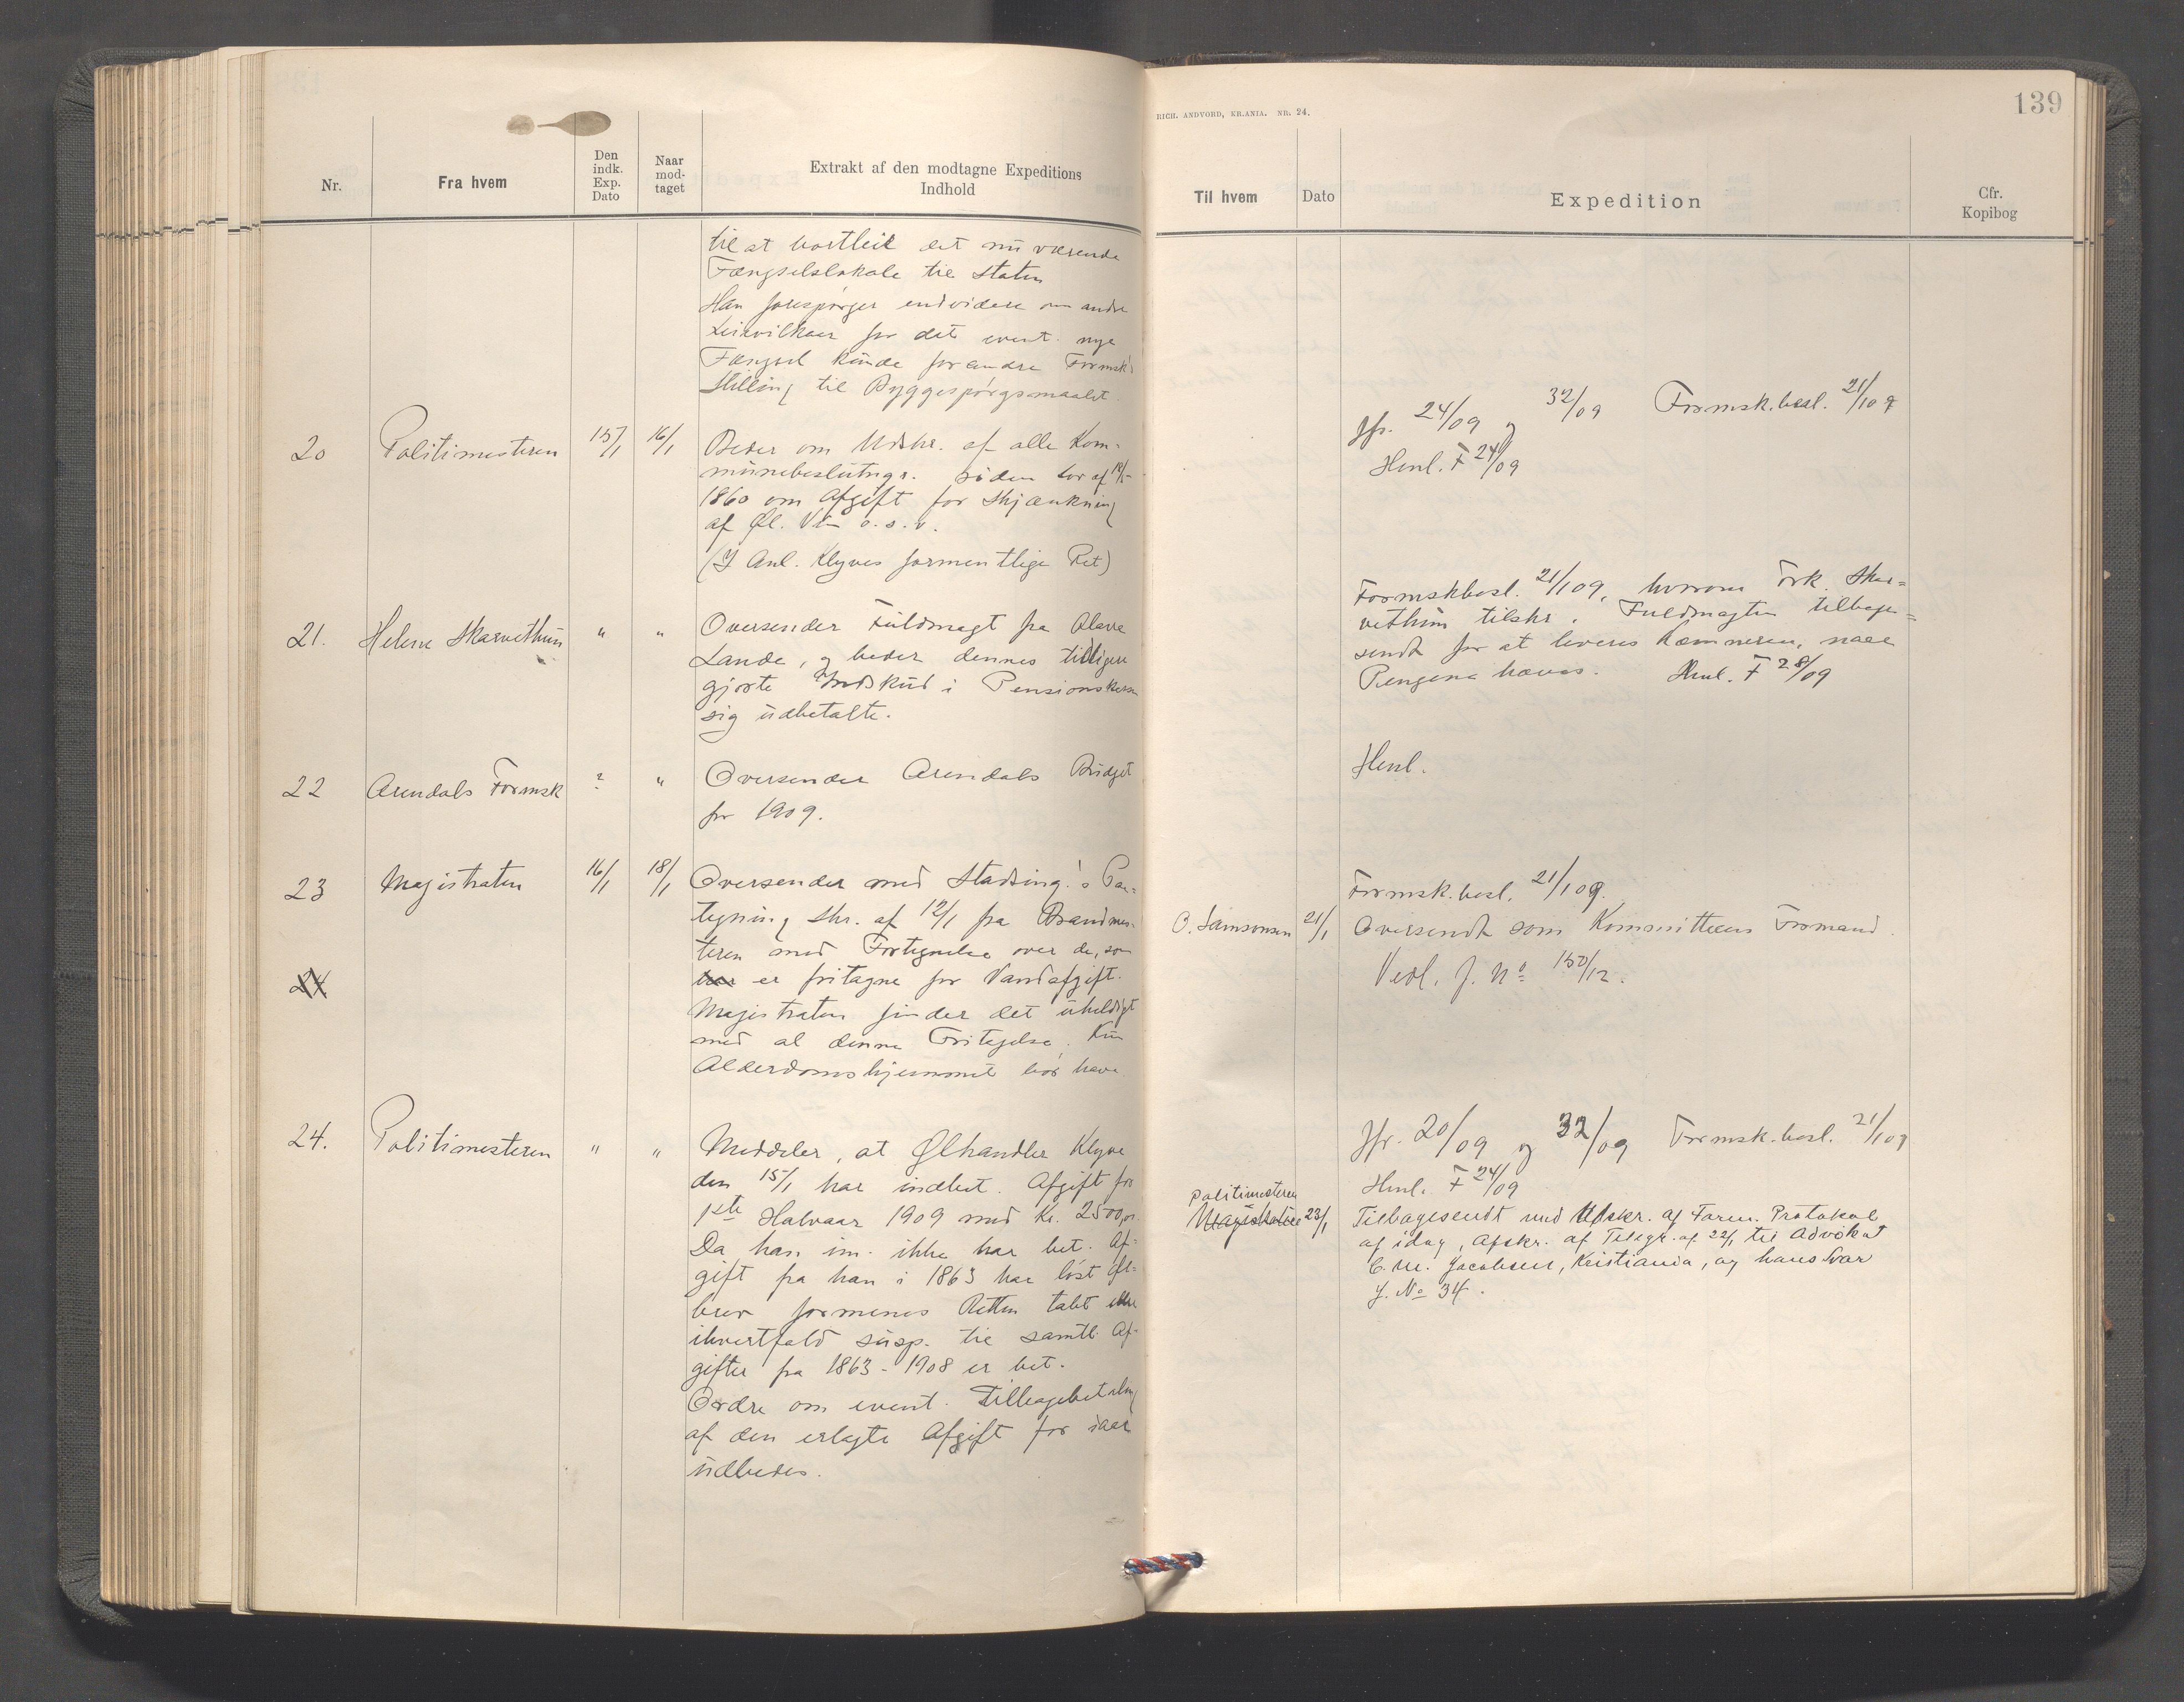 Nr.
Fra hvem
Den
indk.
Exp.
Dato
Naar
mod-
taget
Extrakt af den modtagne Expeditions
Indhold
til at bortleie det nu værende
Fængselslokale til Staten
Han forespørger endvidere om andre
Leievilkaar for det event. nye
Fængsel kunde forandre Formsk's
Stilling til Byggespørgsmaalet.
20 Politimesteren 15/1 16/1 Beder om Udskr. af alle Kom-
munebeslutngr. siden Lov af
1860 om Afgift for Skjænkning
af Øl. Vin o.s.v.
(I Anl. Klyves formentlige Ret)
21. Helene Skarvethun " " Oversender Fuldmagt fra Olava
Lande, og beder dennes tidligere
gjorte Indskud i Pensionskassen
sig udbetalte.
22 Arendals Formsk ? " Oversender Arendals Budget
for 1909.
23 Magistraten 16/1 18/1 Oversender med Stadsing.'s Paa-
tegning Skr. af 12/1 fra Brandmes-
teren med Fortegnelse over de, som
er fritagne for Vandafgift.
24
Magistraten finder det uheldigt
med al denne Fritagelse. Kun
Alderdomshjemmet bør have.
24. Politimesteren " " Meddeler, at Ølhandler Klyve
den 15/1 har indbet. Afgift for
1ste Halvaar 1909 med Kr. 2500,00
Da han im. ikke har bet. Af-
gift fra han i 1863 har løst Øl-
brev formenes Retten tabt
ihvertfald susp. til samtl. Af-
gifter fra 1863 - 1908 er bet.
Ordre om event. Tilbagebetaling
af den erlagte Afgift for iaar
udbedes.
RICH. ANDVORD, KR.ANIA. NR. 24.
139
Til hvem
Dato
Expedition
Cfr.
Kopibog
Jfr. 24/09 og 32/09 Formsk.besl. 21/1 09
Henl. F 24/09
Formskbesl. 21/1 09, hvorom Frk. Skar-
vethun tilskr. Fuldmagten tilbage-
sendt for at leveres Kæmneren, naar
Pengene hæves. Henl. F 28/09
Henl.
Formsk.besl. 21/1 09.
O. Samsonsen 21/1 Oversendt som Kommitteens Formand.
Vedl. J. No 150/12.
Jfr. 20/09 og 32/09 Formsk.besl. 21/1 09
Henl. F 24/09
Politimesteren
Magistraten 23/1 Tilbagesendt med Udskr. af Form. Protokol
af idag, Afskr. af Telegr. af 22/1 til Advokat
C. M. Jacobsen, Kristiania, og hans Svar
J. No 34.